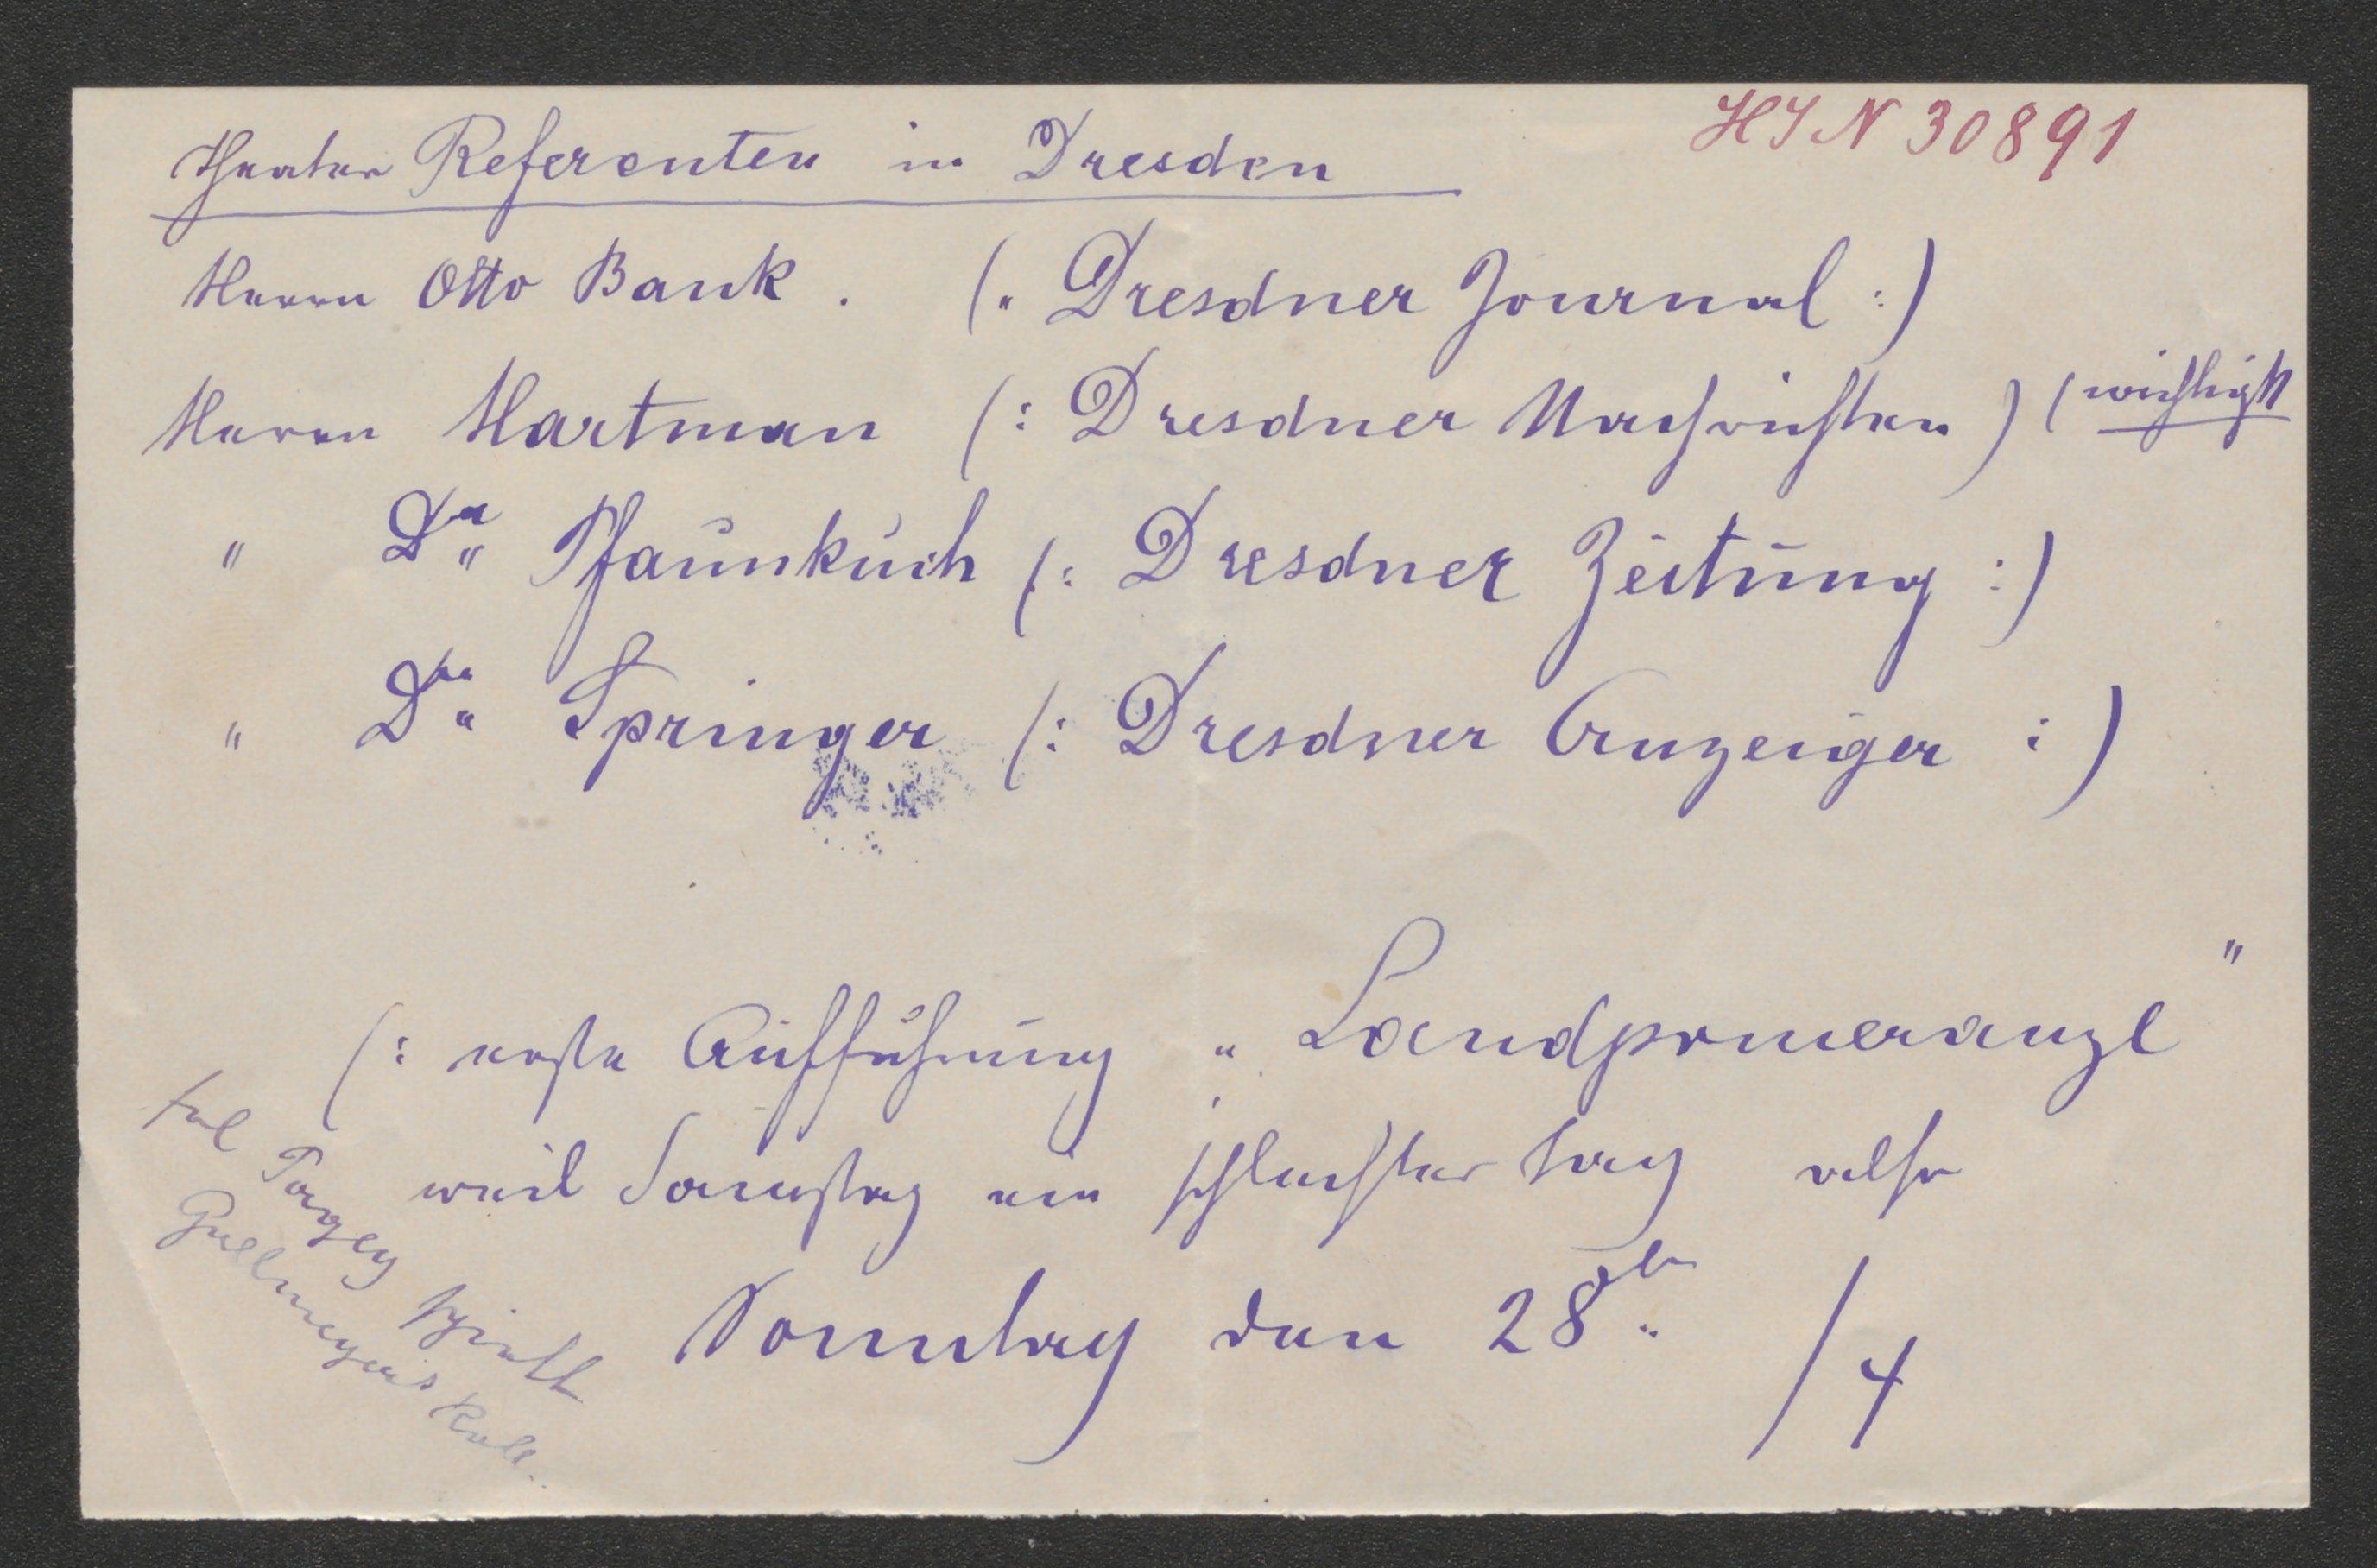 Theater Referenten in Dresden
HIN 30891
Herrn Otto Bank. (" Dresdner Journal :)
Herrn Hartman (: Dresdner Nachrichten ) ( wichtigst
" Dr. Pfaunkuch (: Dresdner Zeitung :)
" Dr. Springer (: Dresdner Anzeiger :)
(: erste Aufführung " Landpomeranze "
weil Samstag ein schlechter Tag also
Sonntag den 28ten /4
spielt
Rolle.